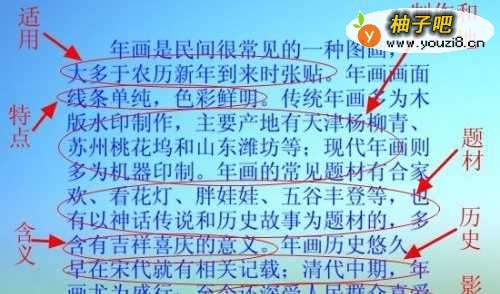 适用
制作和
柚子吧
www.youzi8.cn
年画是民间很常见的一种图画,
大多于农历新年到来时张贴。年画画面
线条单纯，色彩鲜明。传统年画多为木
特点
版水印制作，主要产地有天津杨柳青、
苏州桃花坞和山东潍坊等；现代年画则
多为机器印制。年画的常见题材有合家
题材
欢、看花灯、胖娃娃、五谷丰登等，也
有以神话传说和历史故事为题材的，多
历史
含义
含有吉祥喜庆的意义。年画历史悠久，
早在宋代就有相关记载；清代中期，年
影
画尤为盛行，至今还深受人民群众喜爱